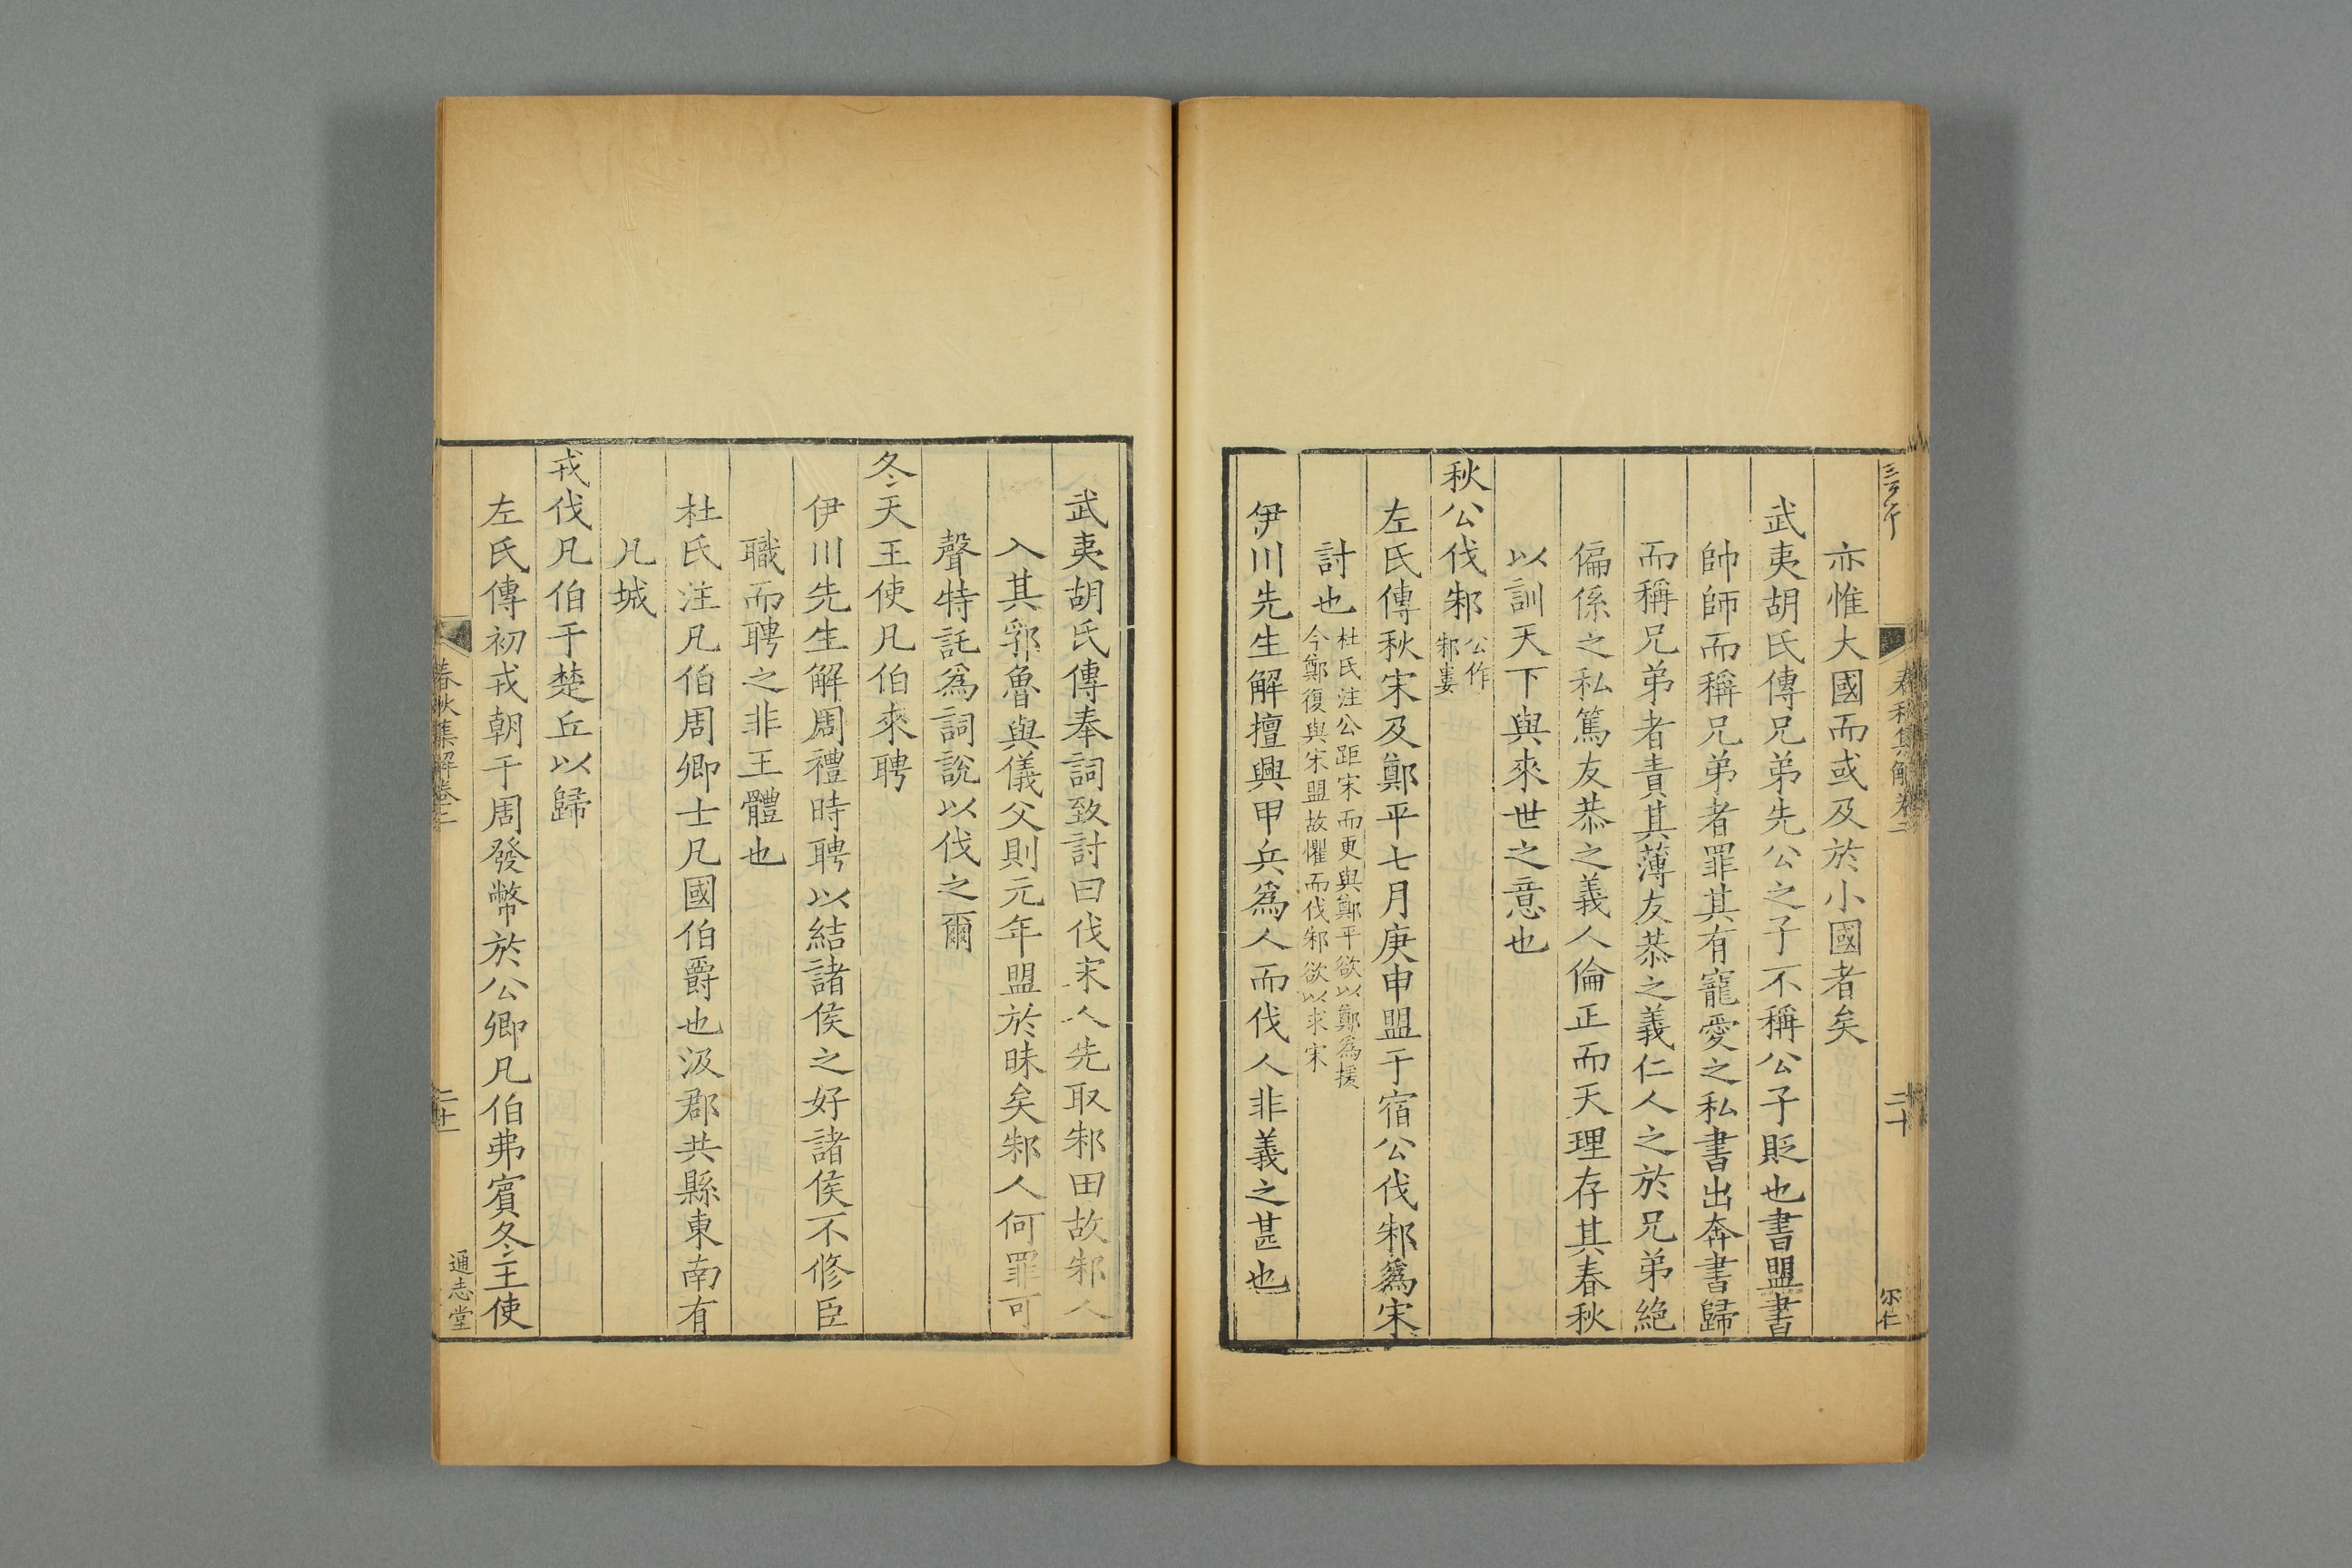 亦惟大國而或及於小國者矣
武夷胡氏傳兄弟先公之子不稱公子貶也書盟書
帥師而稱兄弟者罪其有寵愛之私書出奔書歸
而稱兄弟者責其薄友恭之義仁人之於兄弟絶
偏係之私篤友恭之義人倫正而天理存其春秋
以訓天下與來世之意也
秋公伐邾公作邾婁
左氏傳秋宋及鄭平七月庚申盟于宿公伐邾爲宋
討也杜氏注公距宋而更與鄭平欲以鄭爲援今鄭復與宋盟故懼而伐邾欲以求宋
伊川先生解擅興甲兵爲人而伐人非義之甚也
春秋集解卷二
二十
武夷胡氏傳奉詞致討曰伐宋人先取邾田故邾人
入其郛魯與儀父則元年盟於昧矣邾人何罪可
聲特託爲詞說以伐之爾
冬天王使凡伯來聘
伊川先生解周禮時聘以結諸侯之好諸侯不修臣
職而聘之非王體也
杜氏注凡伯周卿士凡國伯爵也汲郡共縣東南有
凡城
戎伐凡伯于楚丘以歸
左氏傳初戎朝于周發幣於公卿凡伯弗賓冬王使
春秋集解卷二
二十一
通志堂